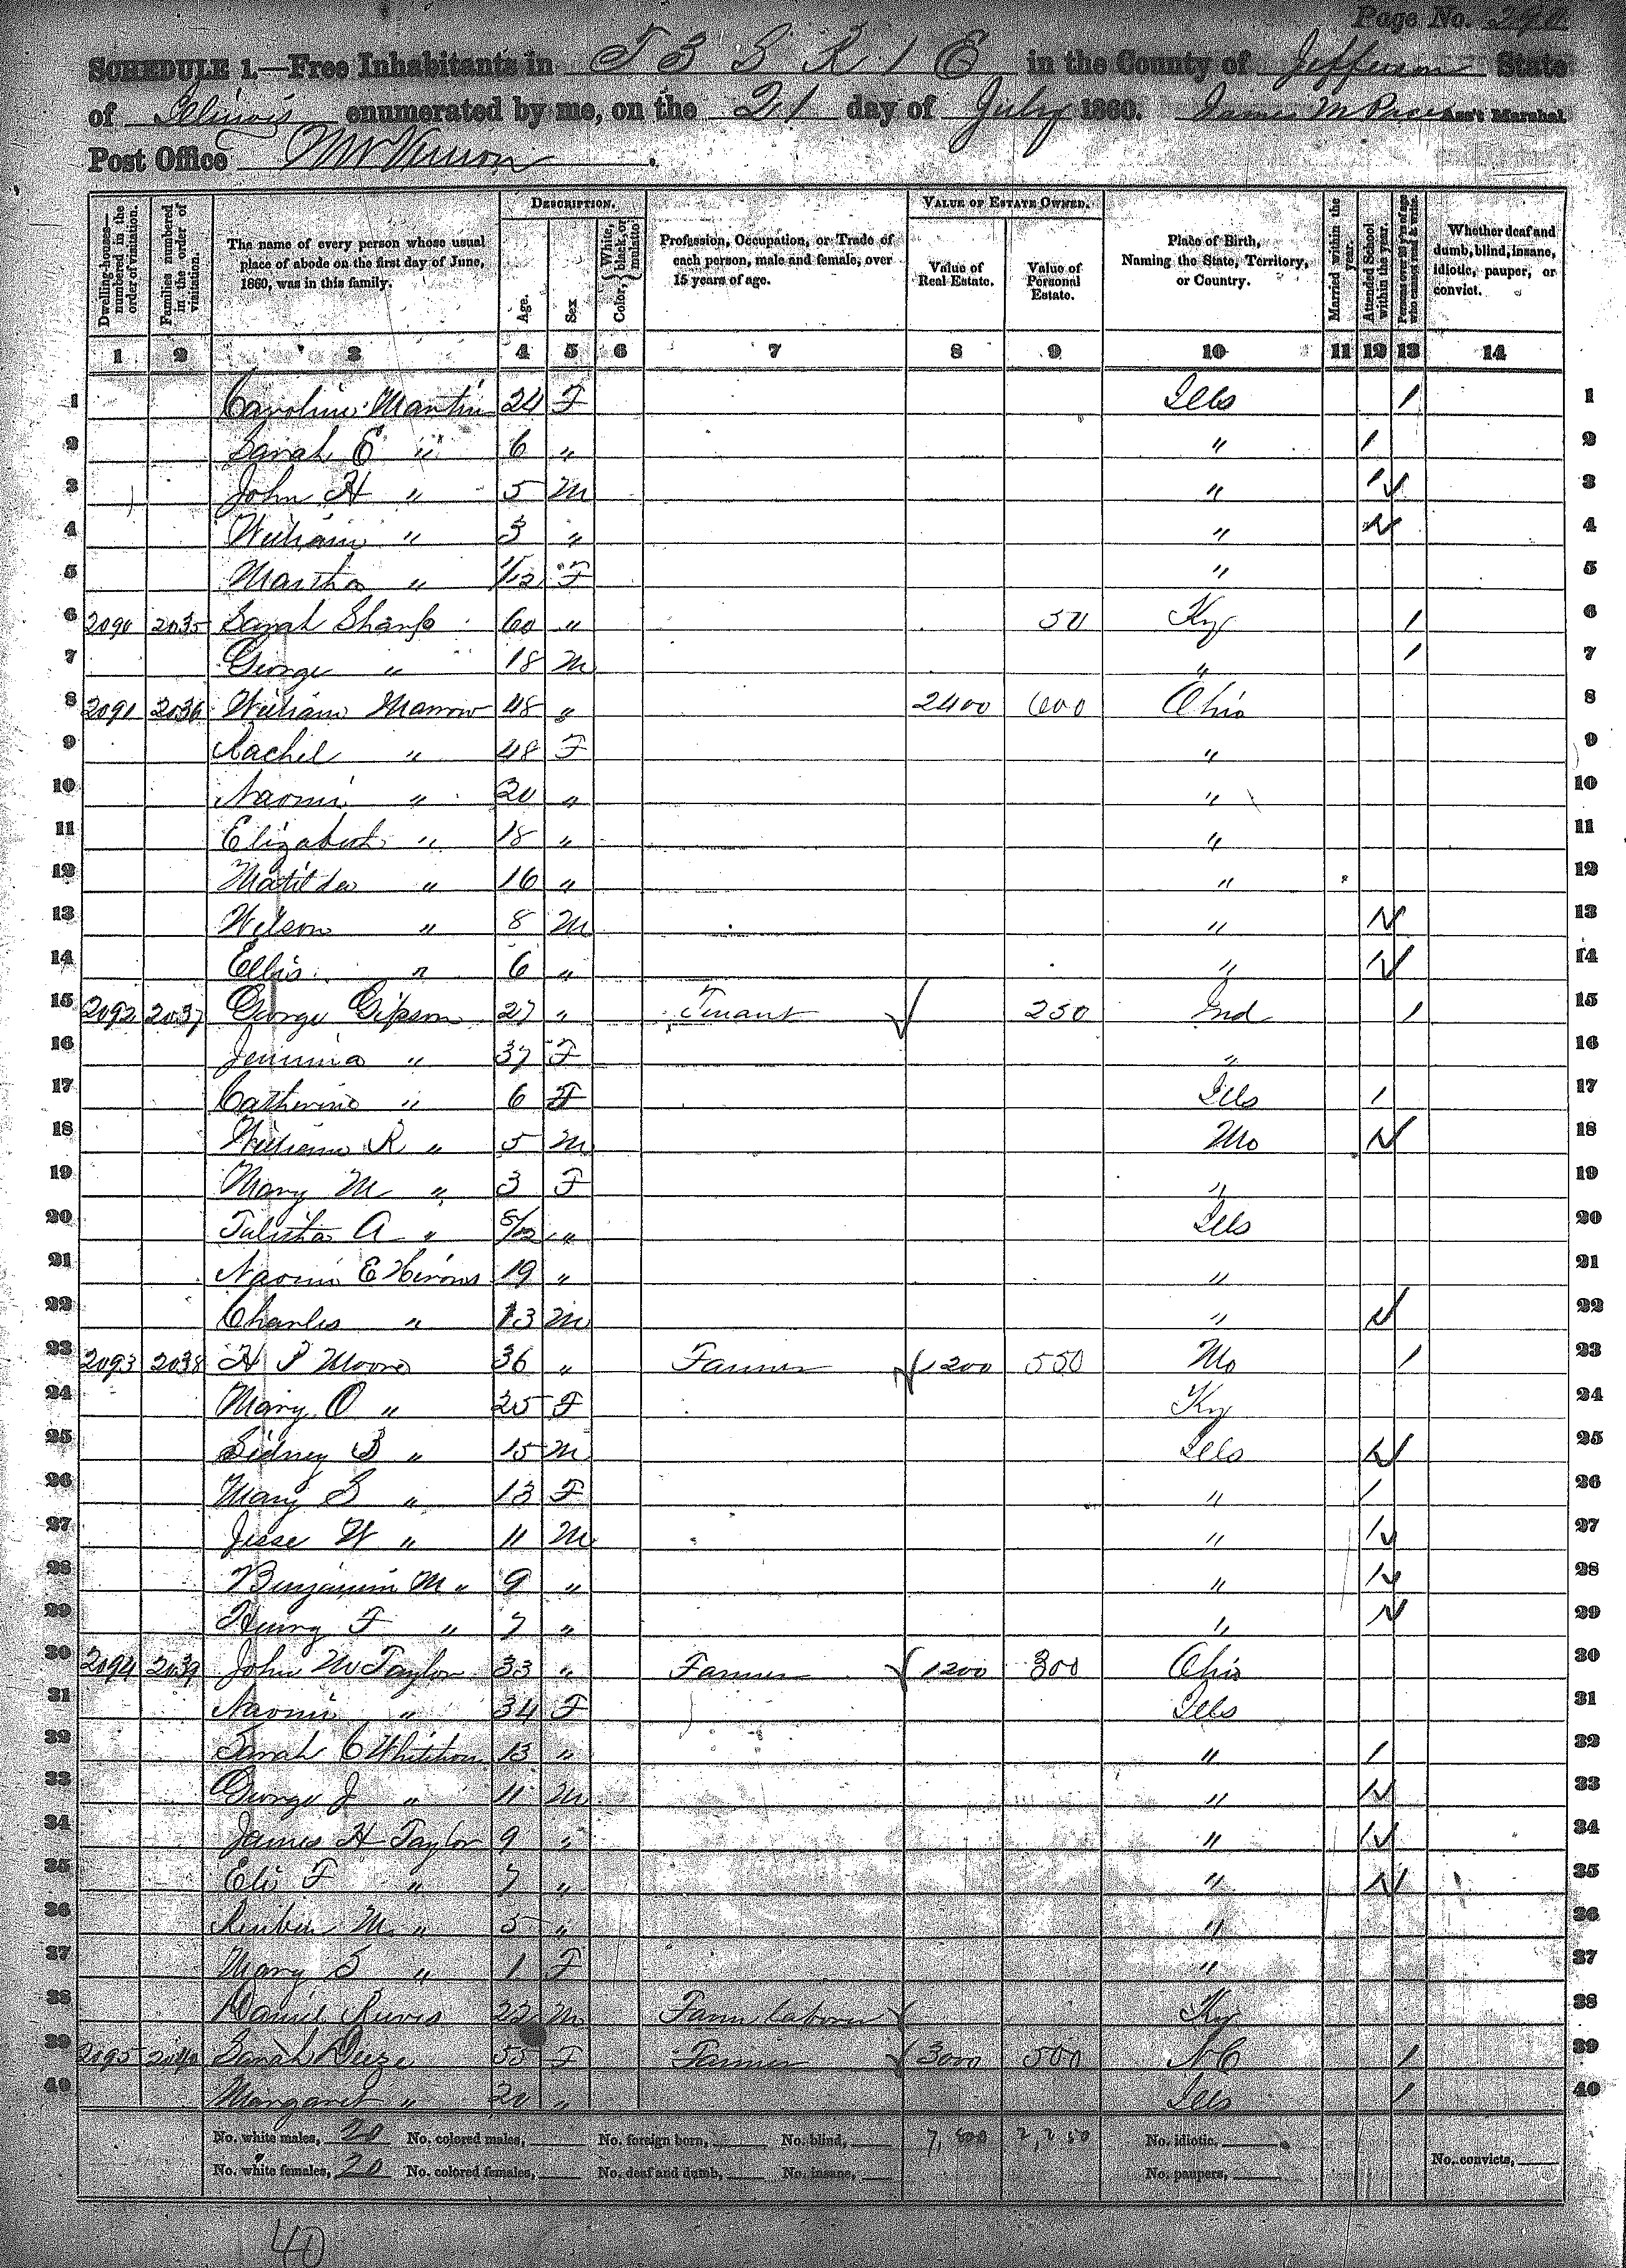 Page No. 290
SCHEDULE 1.—Free Inhabitants in T 3 S R 1 E in the County of Jefferson State
of Illinois enumerated by me, on the 21 day of July 1860. James M Pace Ass't Marshal.
Post Office Mt Vernon.
Dwelling-houses—numbered in the order of visitation.
Families numbered in the order of visitation.
The name of every person whose usual place of abode on the first day of June, 1860, was in this family.
DESCRIPTION.
Age.
Sex
Color, White, black, or mulatto.
Profession, Occupation, or Trade of each person, male and female, over 15 years of age.
VALUE OF ESTATE OWNED.
Value of Real Estate.
Value of Personal Estate.
Place of Birth, Naming the State, Territory, or Country.
Married within the year.
Attended School within the year.
Persons over 20 y'rs of age who cannot read & write.
Whether deaf and dumb, blind, insane, idiotic, pauper, or convict.
1 2 3 4 5 6 7 8 9 10 11 12 13 14
1 Caroline Martin 24 F Ills / 1
2 Sarah E " 6 " " / 2
3 John H " 5 M " / 3
4 William " 3 " " / 4
5 Martha " 1/12 F " 5
6 2090 2035 Sarah Sharp 60 " 50 Ky / 6
7 George " 18 M " / 7
8 2091 2036 William Marrow 48 " 2400 600 Ohio 8
9 Rachel " 48 F " 9
10 Naomi " 20 " " 10
11 Elizabeth " 18 " " 11
12 Matilda " 16 " " 12
13 Wilson " 8 M " / 13
14 Ellis " 6 " " / 14
15 2092 2037 George Gipson 27 " Tenant 250 Ind / 15
16 Jemima " 37 F " 16
17 Catherine " 6 F Ills / 17
18 William R " 5 M Mo / 18
19 Mary M " 3 F " 19
20 Talitha A " 5/12 " Ills 20
21 Naomi E Hirons 19 " " 21
22 Charles " 13 M " / 22
23 2093 2038 H P Moore 36 " Farmer 1200 550 Mo / 23
24 Mary O " 25 F Ky 24
25 Sidney B " 15 M Ills / 25
26 Mary S " 13 F " / 26
27 Jesse W " 11 M " / 27
28 Benjamin M " 9 " " / 28
29 Henry F " 7 " " / 29
30 2094 2039 John W Taylor 33 " Farmer 1200 300 Ohio 30
31 Naomi " 34 F Ills 31
32 Sarah C 13 " " / 32
33 George J " 11 M " / 33
34 James H Taylor 9 " " / 34
35 Eli F " 7 " " / 35
36 Reuben M " 5 " " 36
37 Mary S " 1 F " 37
38 Daniel Reeves 22 M Farm laborer Ky 38
39 2095 2040 Sarah 55 F Farmer 3000 500 NC / 39
40 Margaret " 20 " Ills / 40
No. white males, 20 No. colored males, No. foreign born, No. blind, 7,800 2,250 No. idiotic,
No. white females, 20 No. colored females, No. deaf and dumb, No. insane, No. paupers, No. convicts,
40